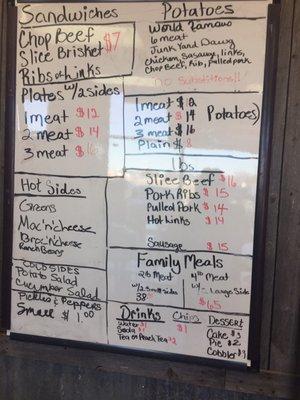 Sandwiches
Chop Beef
Slice Brisket $7
Ribs or Links
Plates w/2 sides
1 meat $12
2 meat $14
3 meat $16
Hot Sides
Greens
Mac'n'cheese
Broc'n'cheese
Ranch Beans
Cold Sides
Potato Salad
Cucumber Salad
Pickles & Peppers
Small $1.00
Potatoes
World Famous
6 meat
Junk Yard Dawg
Chicken, Sausage, links,
Chop Beef, Rib, Pulled pork
No Substitutions!!
1 meat $12
2 meat $14 Potatoes)
3 meat $16
Plain $8
Lbs
Slice Beef $16
Pork Ribs $15
Pulled Pork $14
Hot Links $14
Sausage $15
Family Meals
2lb Meat
w/2 small sides
38
4lb Meat
w/ Large Sides
$65
Drinks
Water $1
Soda $1
Tea or Peach Tea $2
Chips
$1
Dessert
Cake $3
Pie $2
Cobbler $3